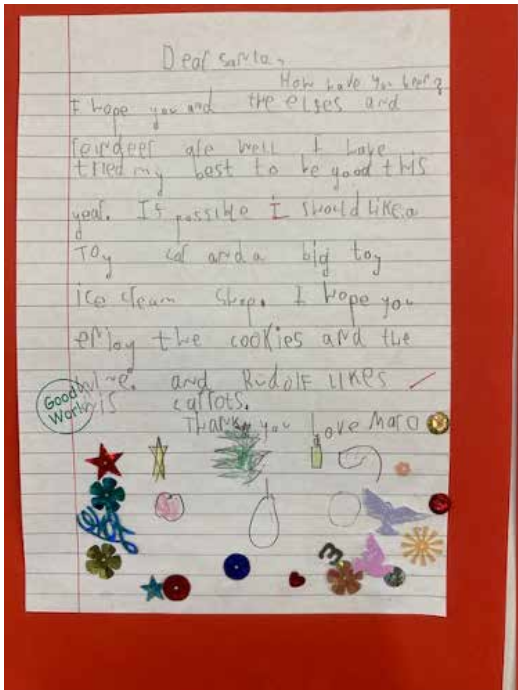 Dear santa,
How have you been?
I hope you and the elfes and
reindeer are well I have
tried my best to be good this
year. If possible I should like a
Toy car and a big toy
ice cream shop. I hope you
enjoy the cookies and the
wine. and Rudolf likes
his carrots.
Thank you Love Marco
Good
Work